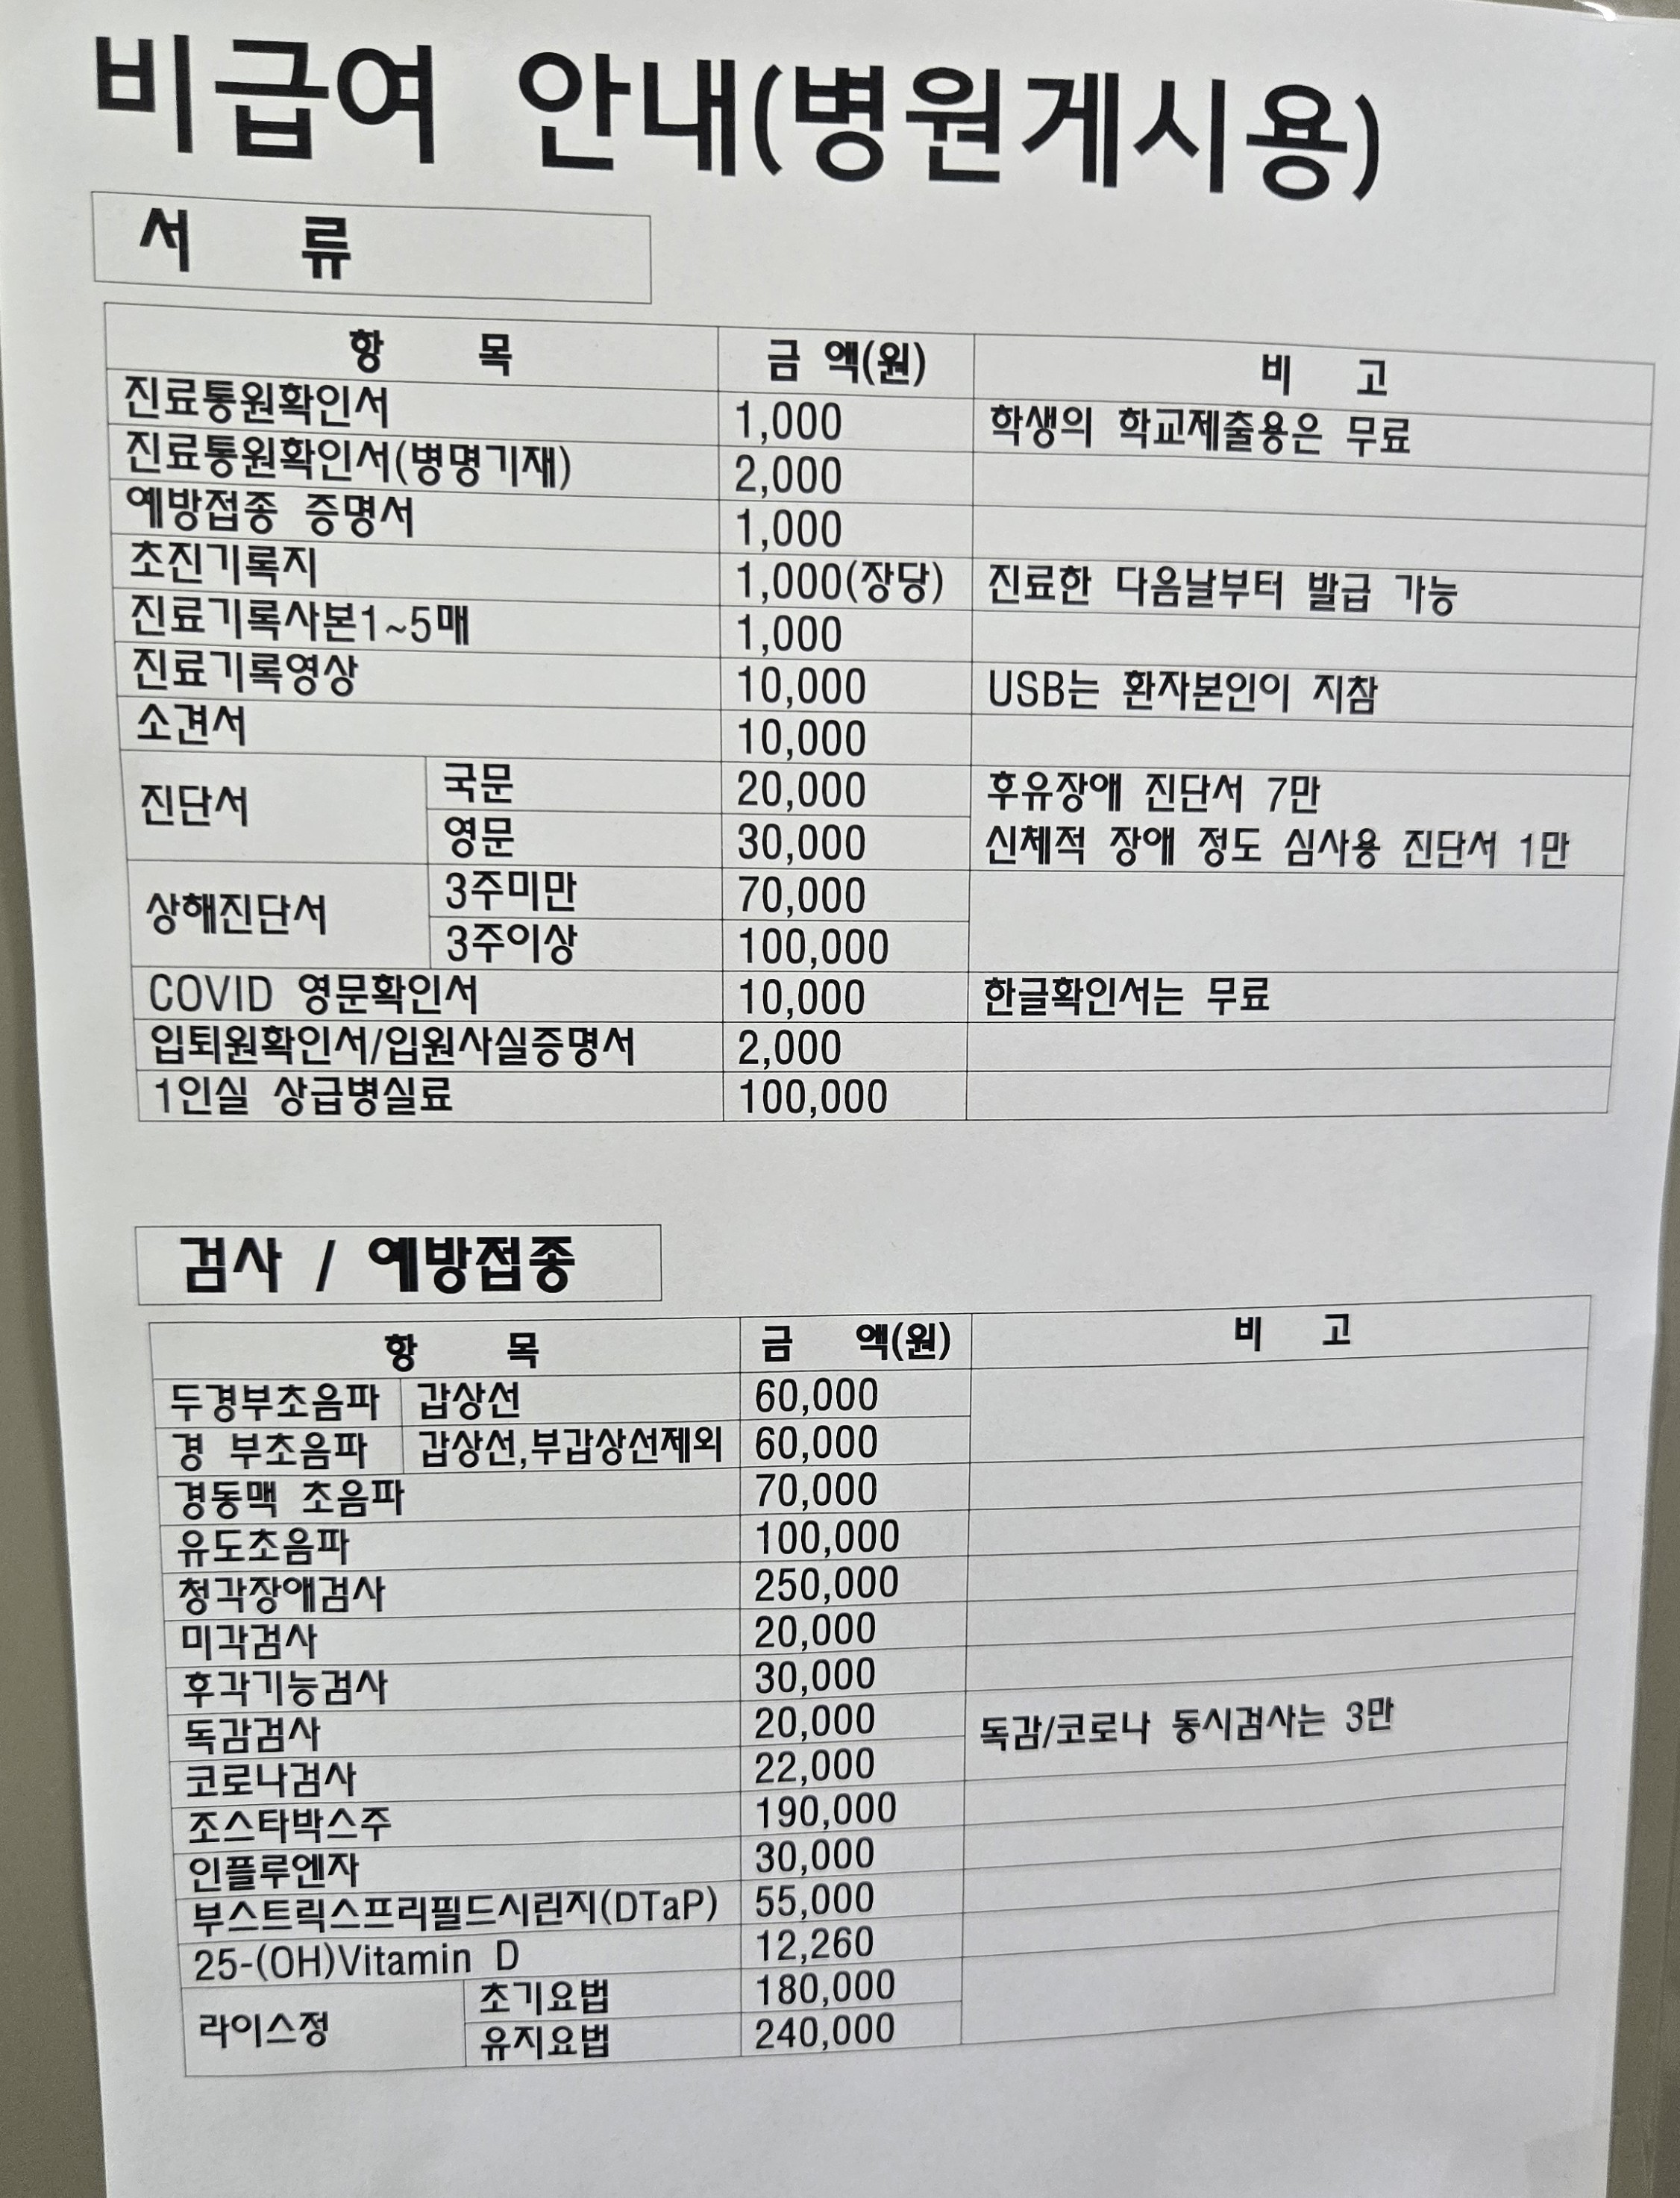 비급여 안내(병원게시용)
서 류
항 목 금 액(원) 비 고
진료통원확인서 1,000 학생의 학교제출용은 무료
진료통원확인서(병명기재) 2,000
예방접종 증명서 1,000
초진기록지 1,000(장당) 진료한 다음날부터 발급 가능
진료기록사본1~5매 1,000
진료기록영상 10,000 USB는 환자본인이 지참
소견서 10,000
진단서 국문 20,000 후유장애 진단서 7만
영문 30,000 신체적 장애 정도 심사용 진단서 1만
상해진단서 3주미만 70,000
3주이상 100,000
COVID 영문확인서 10,000 한글확인서는 무료
입퇴원확인서/입원사실증명서 2,000
1인실 상급병실료 100,000
검사 / 예방접종
항 목 금 액(원) 비 고
두경부초음파 갑상선 60,000
경 부초음파 갑상선,부갑상선제외 60,000
경동맥 초음파 70,000
유도초음파 100,000
청각장애검사 250,000
미각검사 20,000
후각기능검사 30,000
독감검사 20,000 독감/코로나 동시검사는 3만
코로나검사 22,000
조스타박스주 190,000
인플루엔자 30,000
부스트릭스프리필드시린지(DTaP) 55,000
25-(OH)Vitamin D 12,260
라이스정 초기요법 180,000
유지요법 240,000